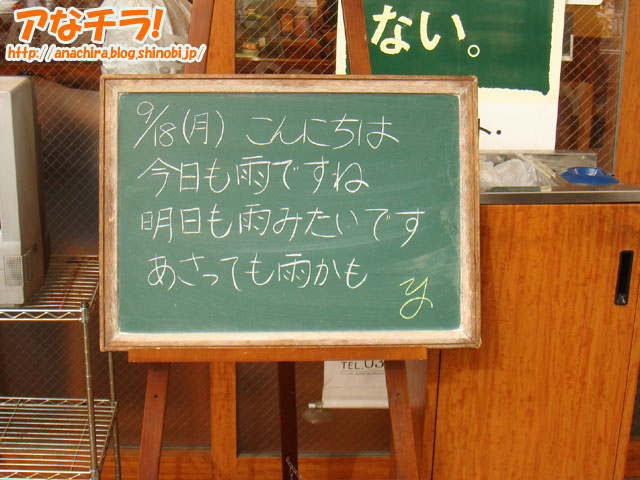 アなチラ!
http://anachira.blog.shinobi.jp/
ない。
9/18(月) こんにちは
今日も雨ですね
明日も雨みたいです
あさっても雨かも
y
TEL.03